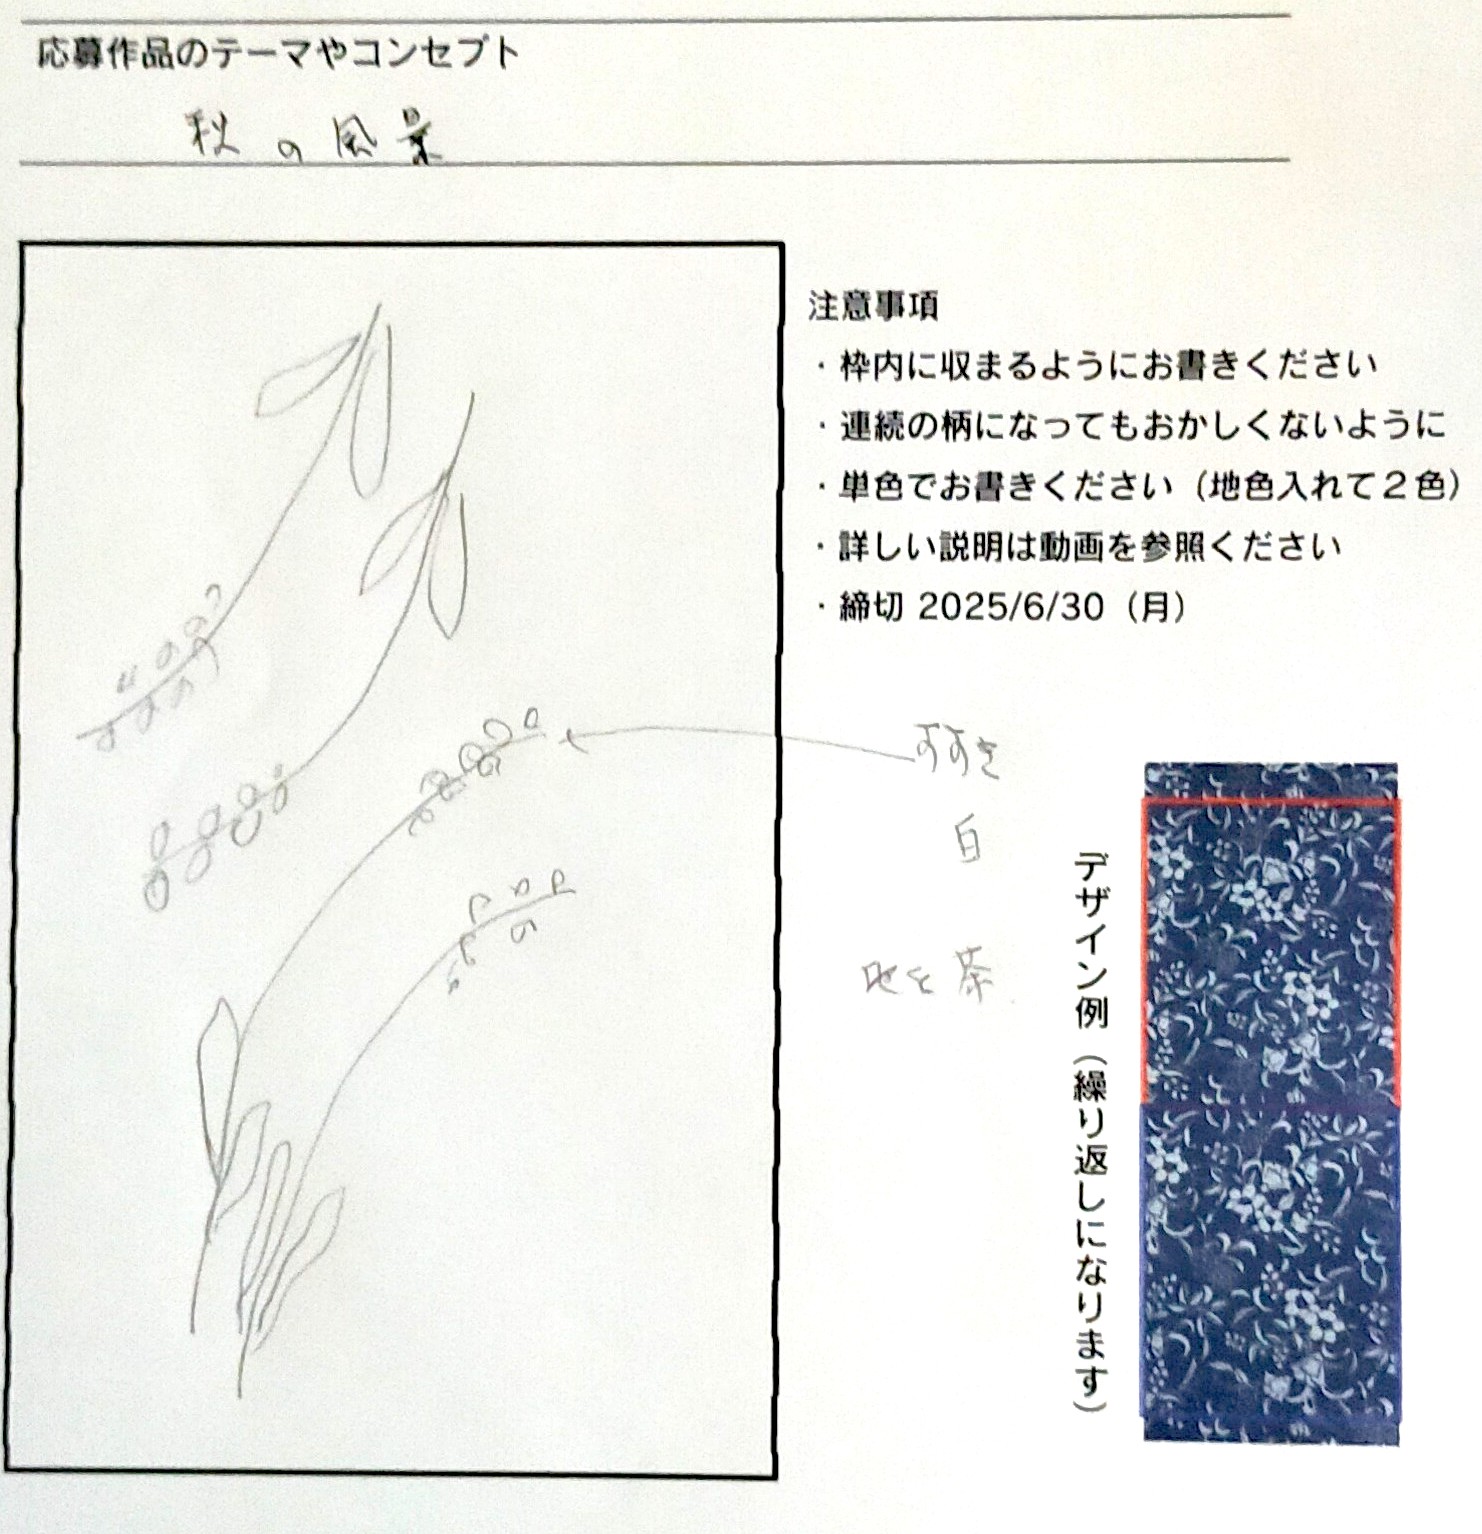 応募作品のテーマやコンセプト
秋の風景
注意事項
・枠内に収まるようにお書きください
・連続の柄になってもおかしくないように
・単色でお書きください（地色入れて２色）
・詳しい説明は動画を参照ください
・締切 2025/6/30（月）
すすき
白
地を茶
デザイン例（繰り返しになります）